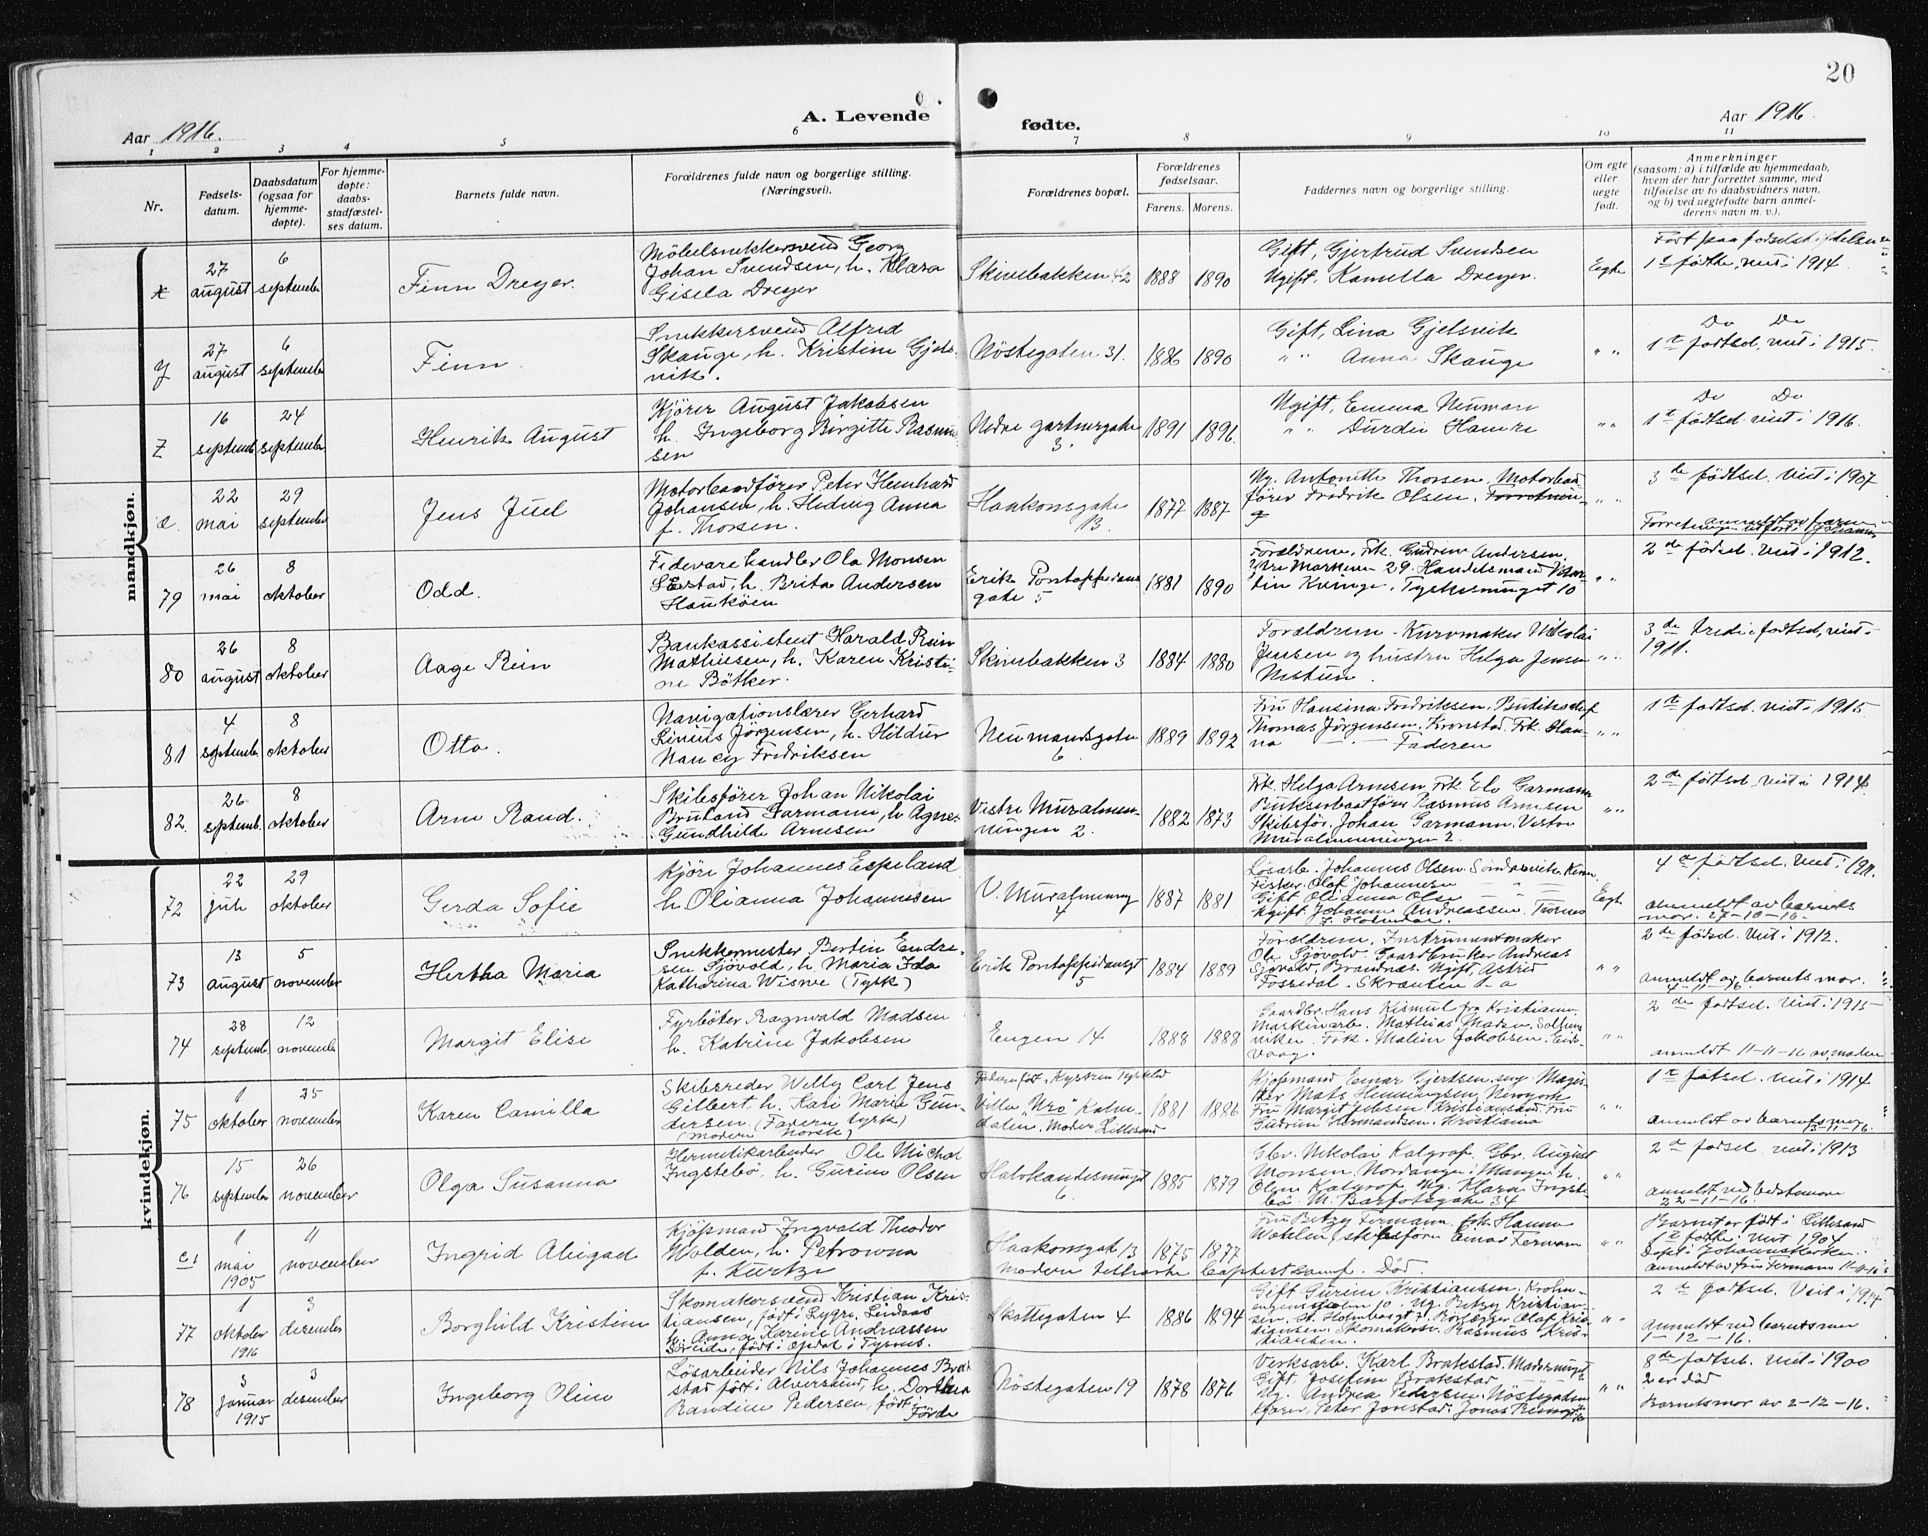 20
Aar 1916. A. Levende fødte. Aar 1916.
1 2 3 4 5 6 7 8 9 10 11
Nr.
Fødsels-
datum.
Daabsdatum
(ogsaa for
hjemme-
døpte).
For hjemme-
døpte:
daabs-
stadfæstel-
ses datum.
Barnets fulde navn.
Forældrenes fulde navn og borgerlige stilling.
(Næringsvei).
Forældrenes bopæl.
Forældrenes
fødselsaar.
Farens. Morens.
Faddernes navn og borgerlige stilling.
Om egte
eller
uegte
født.
Anmerkninger
(saasom: a) i tilfælde av hjemmedaab,
hvem der har forrettet samme, med
tilføielse av to daabsvidners navn,
og b) ved uegtefødte barn anmel-
derens navn m. v.).
mandkjøn.
x
27
august
6
septembr
Finn Dreyer.
Möbelsnekkersvend Georg
Johan Svendsen, h. Klara
Gisela Dreyer
Skivebakken 42
1888 1890
Gift, Gjertrud Svendsen
Ugift, Kamilla Dreyer.
Egte
1ste fødte, viet i 1914.
y
27
august
6
septembr
Finn.
Snekkersvend Alfred
Skauge, h. Kristine Gjels-
vik.
Nöstegaten 31.
1886 1890
Gift, Lina Gjelsvik
" " Anna Skauge
" "
Do Do
1ste fødsel. viet i 1915
z
16
septemb
24
septembr
Henrik August
Kjörer August Jakobsen
h. Ingeborg Birgitte Rasmus-
sen
Nedre gartnergate
3.
1891 1896.
Ugift, Emma Neuman
" " Durdei Hamre
" "
Do Do
1ste fødsel. viet i 1916.
æ.
22
mai
29
septembr
Jens Juel
Motorbaadförer Peter
Johansen, h. Hedvig Anna
f. Thorsen.
Haakonsgate
13
1877 1887
Ug. Antonette Thorsen, Motorbaad
förer Fredrik Olsen.
" "
3de fødsel. Viet i 1907
79
26
mai
8
oktober
Odd.
Fedevarehandler Ola Monsen
h. Brita Andersen
Haukøen
Erik Pontoppidans
gate 5
1881 1890
Forældrene, Frk. Gudrun Andersen,
29. Handelsmand
Kvinge, Tyskesmuget 10
" "
2de fødsel. Viet i 1912.
80
26
august
8
oktober
Aage Rein
Bankassistent Harald Rein
Mathiesen, h. Karen Kristi-
ne Bötker.
Skivebakken 3
1884 1880
Forældrene - Kurvmaker Nikolai
Jensen og hustru Helga Jensen
Nestun.
" "
3de tredie fødsel, viet i
1911.
81
4
septembr
8
oktober
Otto.
Navigationslærer Gerhard
Linius Jörgensen, h. Hildur
Nancy Fredriksen
Neumandsgate
6
1889 1892
Fru Hansina Fredriksen,
Thomas Jörgensen. Kronstad. Frk. Han-
na — Faderen
" "
1ste fødsel. viet i 1915
82.
26
septemb.
8
oktober
Arne Rand.
Skibsförer Johan Nikolai
Bruland Garmann, h Agnes
Gundhilde Arnesen
Vestre Muralmen-
ningen 2.
1882 1873
Frk. Helga Arnesen, Frk. Garmann
Rasmus Arnesen
Skibsför. Johan Garmann. Vestre
Muralmenningen 2.
" "
2de fødsel. viet i 1914
kvindekjøn.
72
22
juli
29
oktober
Gerda Sofie
Kjörer Johannes Espeland
h Olianna Johannesen
V. Muralmenning
4
1887 1881
Lösarb. Johannes Olsen
Fisker Olaf Johannesen
Gift Olianna Olsen
Ugift Johanne Andreassen.
Egte
4de fødsel. Viet i 1911.
anmeldt av barnets
mor. 27-10-16.
73
13
august
5
november
Hertha Maria
Snekkermester Bertin Endre-
sen Sjövold, h. Maria Ida
Katharina Wisnie (Tysk)
Erik Pontoppidansgt
5
1884 1889
Forældrene, Instrumentmaker
Ole Sjövold. Gaardbruker Andreas
Sjövold, Brandnes. Ugift, Astrid
Fossedal. Skranten 1 a
" "
2de fødsel. Viet i 1912.
anmeldt av barnets mor.
4-11-16
74
28
septembr
12
novembr
Margit Elise
Fyrböter Ragnvald Madsen
h. Katrine Jakobsen
Engen 14
1888 1888
Gaardbr. Hans Kismul
Maskinarb. Mathias Madsen,
Frk. Malene Jakobsen.
" "
2den fødsel. Viet i 1915
anmeldt 11-11-16 av moder
75
1
oktober
25
november
Karen Camilla
Skibsreder Willy Carl Jens
Gilbert, h. Kari Marie Gun-
dersen. (Faderen tysk)
(Moderen Norsk)
Villa "Uro" Kalm-
dalen. Moder Lillesand
1881 1886
Kjøpmand Einar Gjertsen,
Mats Henningsen, Newyork
Fru Margit Jebsen. Kristiansand, Fru
Gudrun Hermandsen. Kristiania
" "
1ste fødsel. viet i 1914
anmeldt av barnets mor
76
15
septembr
26
november
Olga Susanna
Hermetikarbeider Ole Michal
Ingstebö, h. Gurine Olsen
Halvkandesmuget
6
1885 1879
Gbr. Nikolai Kalgraf. Gbr. August
Monsen, Nordanger i Manger h.
Olga Kalgraf. Ug. Klara Ingste-
bö. M. Barfotsgate 34
" "
2de fødsel viet i 1913
anmeldt ved bedstemor
22-11-16.
1
mai
1905
11
november
Ingrid Abigael
Kjöpmand Ingvald Theodor
Wolden, h. Petrowna
f. Kurtze
Haakonsgate 13
1875 1877
Fru Betzy Fermann, frk. Hanna
Watelin, skibsförer Einar Fermann
" "
Barnet er født i Lillesand
1ste fødte. viet 1904
Døpt i Johanneskirken.
anmeldt av Fru Fermann 11-11-16
77
1
oktober
1916
3
december
Borghild Kristine
Skomakersvend Kristian Kris-
tiansen, født i Lygre, Lindaas
h. Anna Karine Andreassen
Skottegaten 4
1886 1894
Gift Gurine Kristiansen.
Ug. Betzy Kristian-
sen, St. Hansbergt Olaf Kris-
tiansen. Skomakersv. Rasmus Kris-
tiansen.
" "
2de fødsel. Viet i 1914
anmeldt ved barnets mor
1-12-16.
78
3
januar
1915
3
desember
Ingeborg Oline
Lösarbeider Nils Johannes Brak
stad født i Alversund, h. Dorthea
Randine Pedersen, født i
Förde
Nöstegaten 19
1878 1876
Verksarb. Karl Brakstad.
Gift Josefine Brakstad
Ug. Andrea Pedersen. Nöstegaten
Peter Jonstad. Jonas
" "
8de fødsel. viet i 1900
2 er død
Barnets mor av 2-12-16.